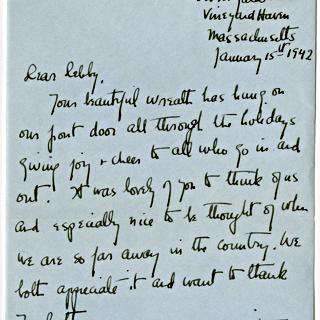 Vineyard Haven
Massachusetts
January 15th 1942
Dear Libby,
Your beautiful wreath has hung on
our front door all through the holidays
giving joy & cheer to all who go in and
out. It was lovely of you to think of us
and especially nice to be thought of when
we are so far away in the country. We
both appreciate it and want to thank